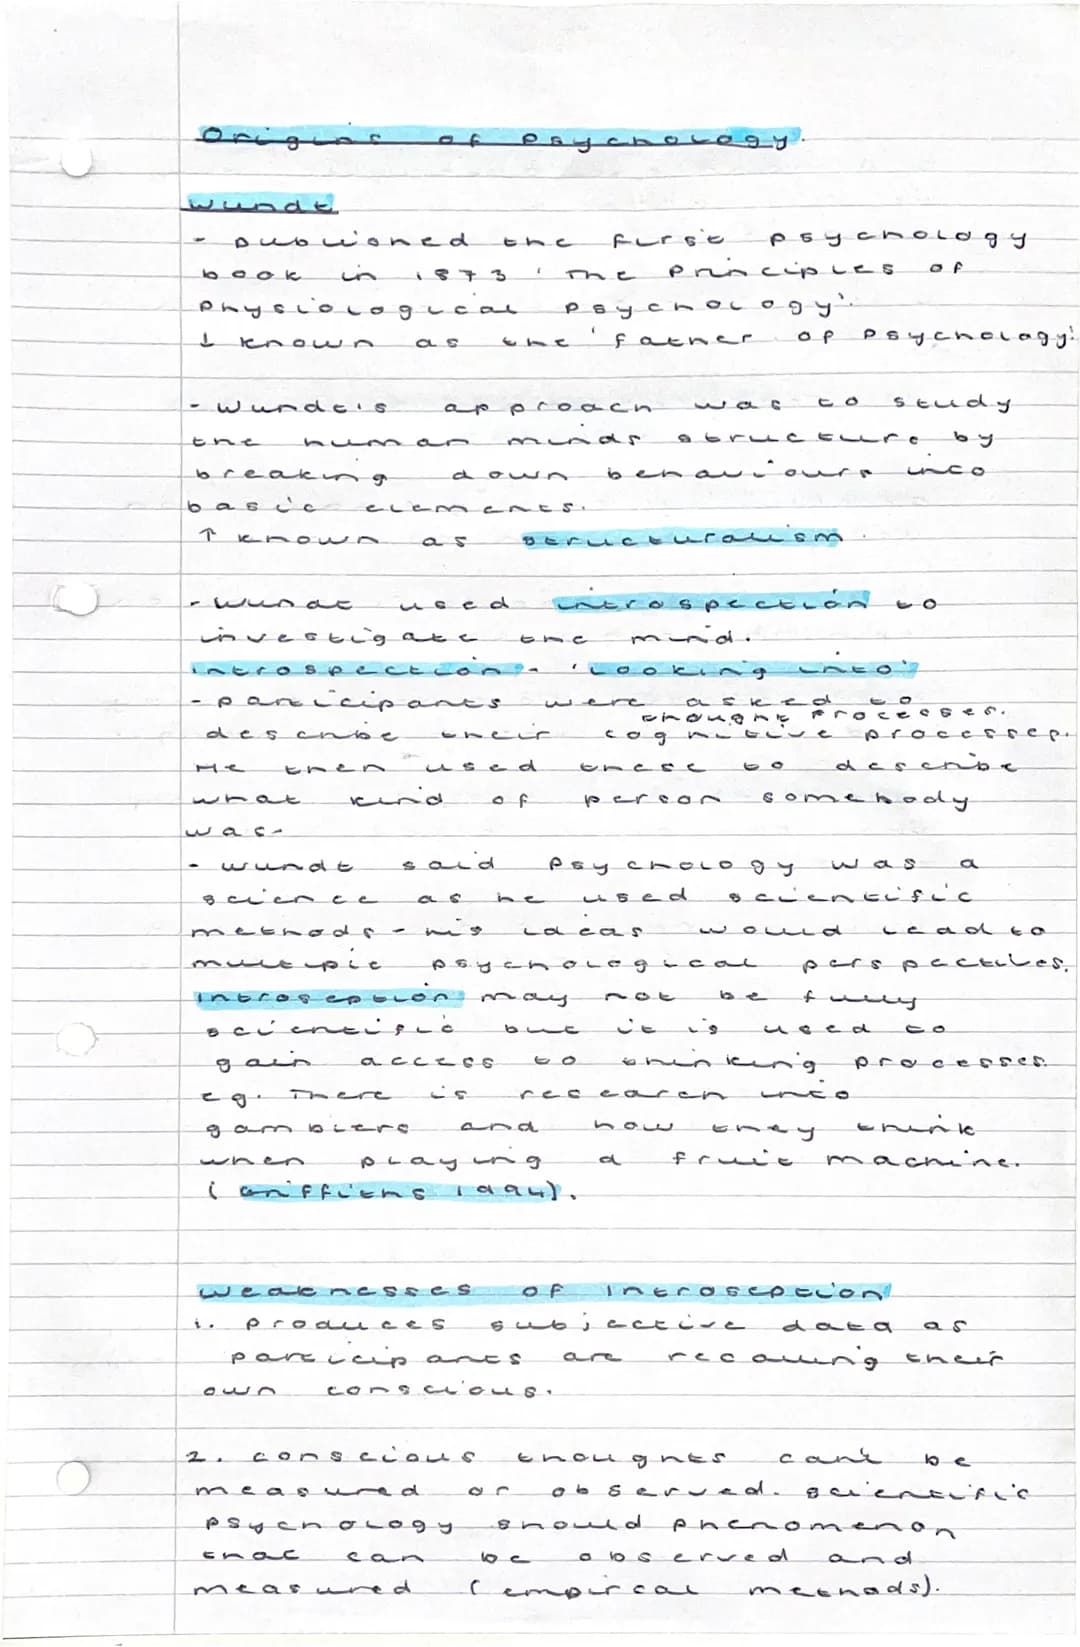 Origins of Psychology.
Wundt
- published the first psychology
book in 1873 'The Principles of
Physiological Psychology'.
↓ known as the 'father of Psychology'.
- Wundt's approach was to study
the human minds structure by
breaking down behaviours into
basic elements.
↑ known as structuralism.
- Wundt used introspection to
investigate the mind.
introspection - 'looking into'
- participants were asked to
thought processes.
describe their cognitive processes.
He then used these to describe
what kind of person somebody
was.
- Wundt said Psychology was a
science as he used scientific
methods - his ideas would lead to
multiple psychological perspectives.
Introsception may not be fully
scientific but it is used to
gain access to thinking processes.
eg. There is research into
gamblers and how they think
when playing a fruit machine.
(Griffiths 1994).
Weaknesses of Introsception
1. Produces subjective data as
participants are recalling their
own conscious.
2. conscious thoughts can't be
measured or observed. scientific
psychology should phenomenon
that can be observed and
measured (empircal methods).